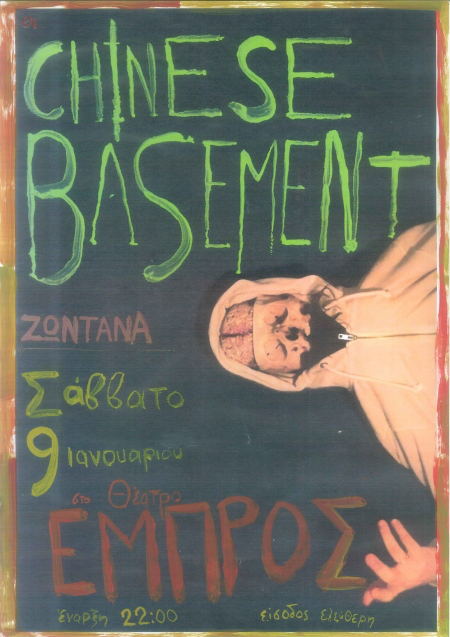 CHINESE
BASEMENT
ΖΩΝΤΑΝΑ
Σάββατο
9 ιανουαρίου
στο Θέατρο
ΕΜΠΡΟΣ
έναρξη 22:00 είσοδος ελεύθερη